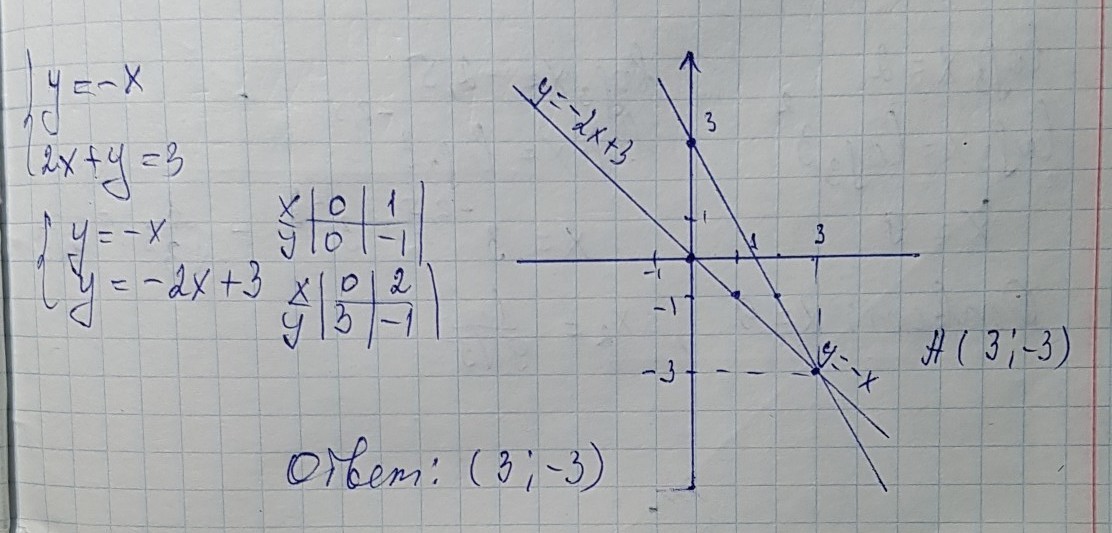 y = -x
2x + y = 3
y = -x
y = -2x + 3
x | 0 | 1
y | 0 | -1
x | 0 | 2
y | 3 | -1
y = -2x+3
3
1
-1
1
3
-1
-3
y = -x
A (3; -3)
Ответ: (3; -3)